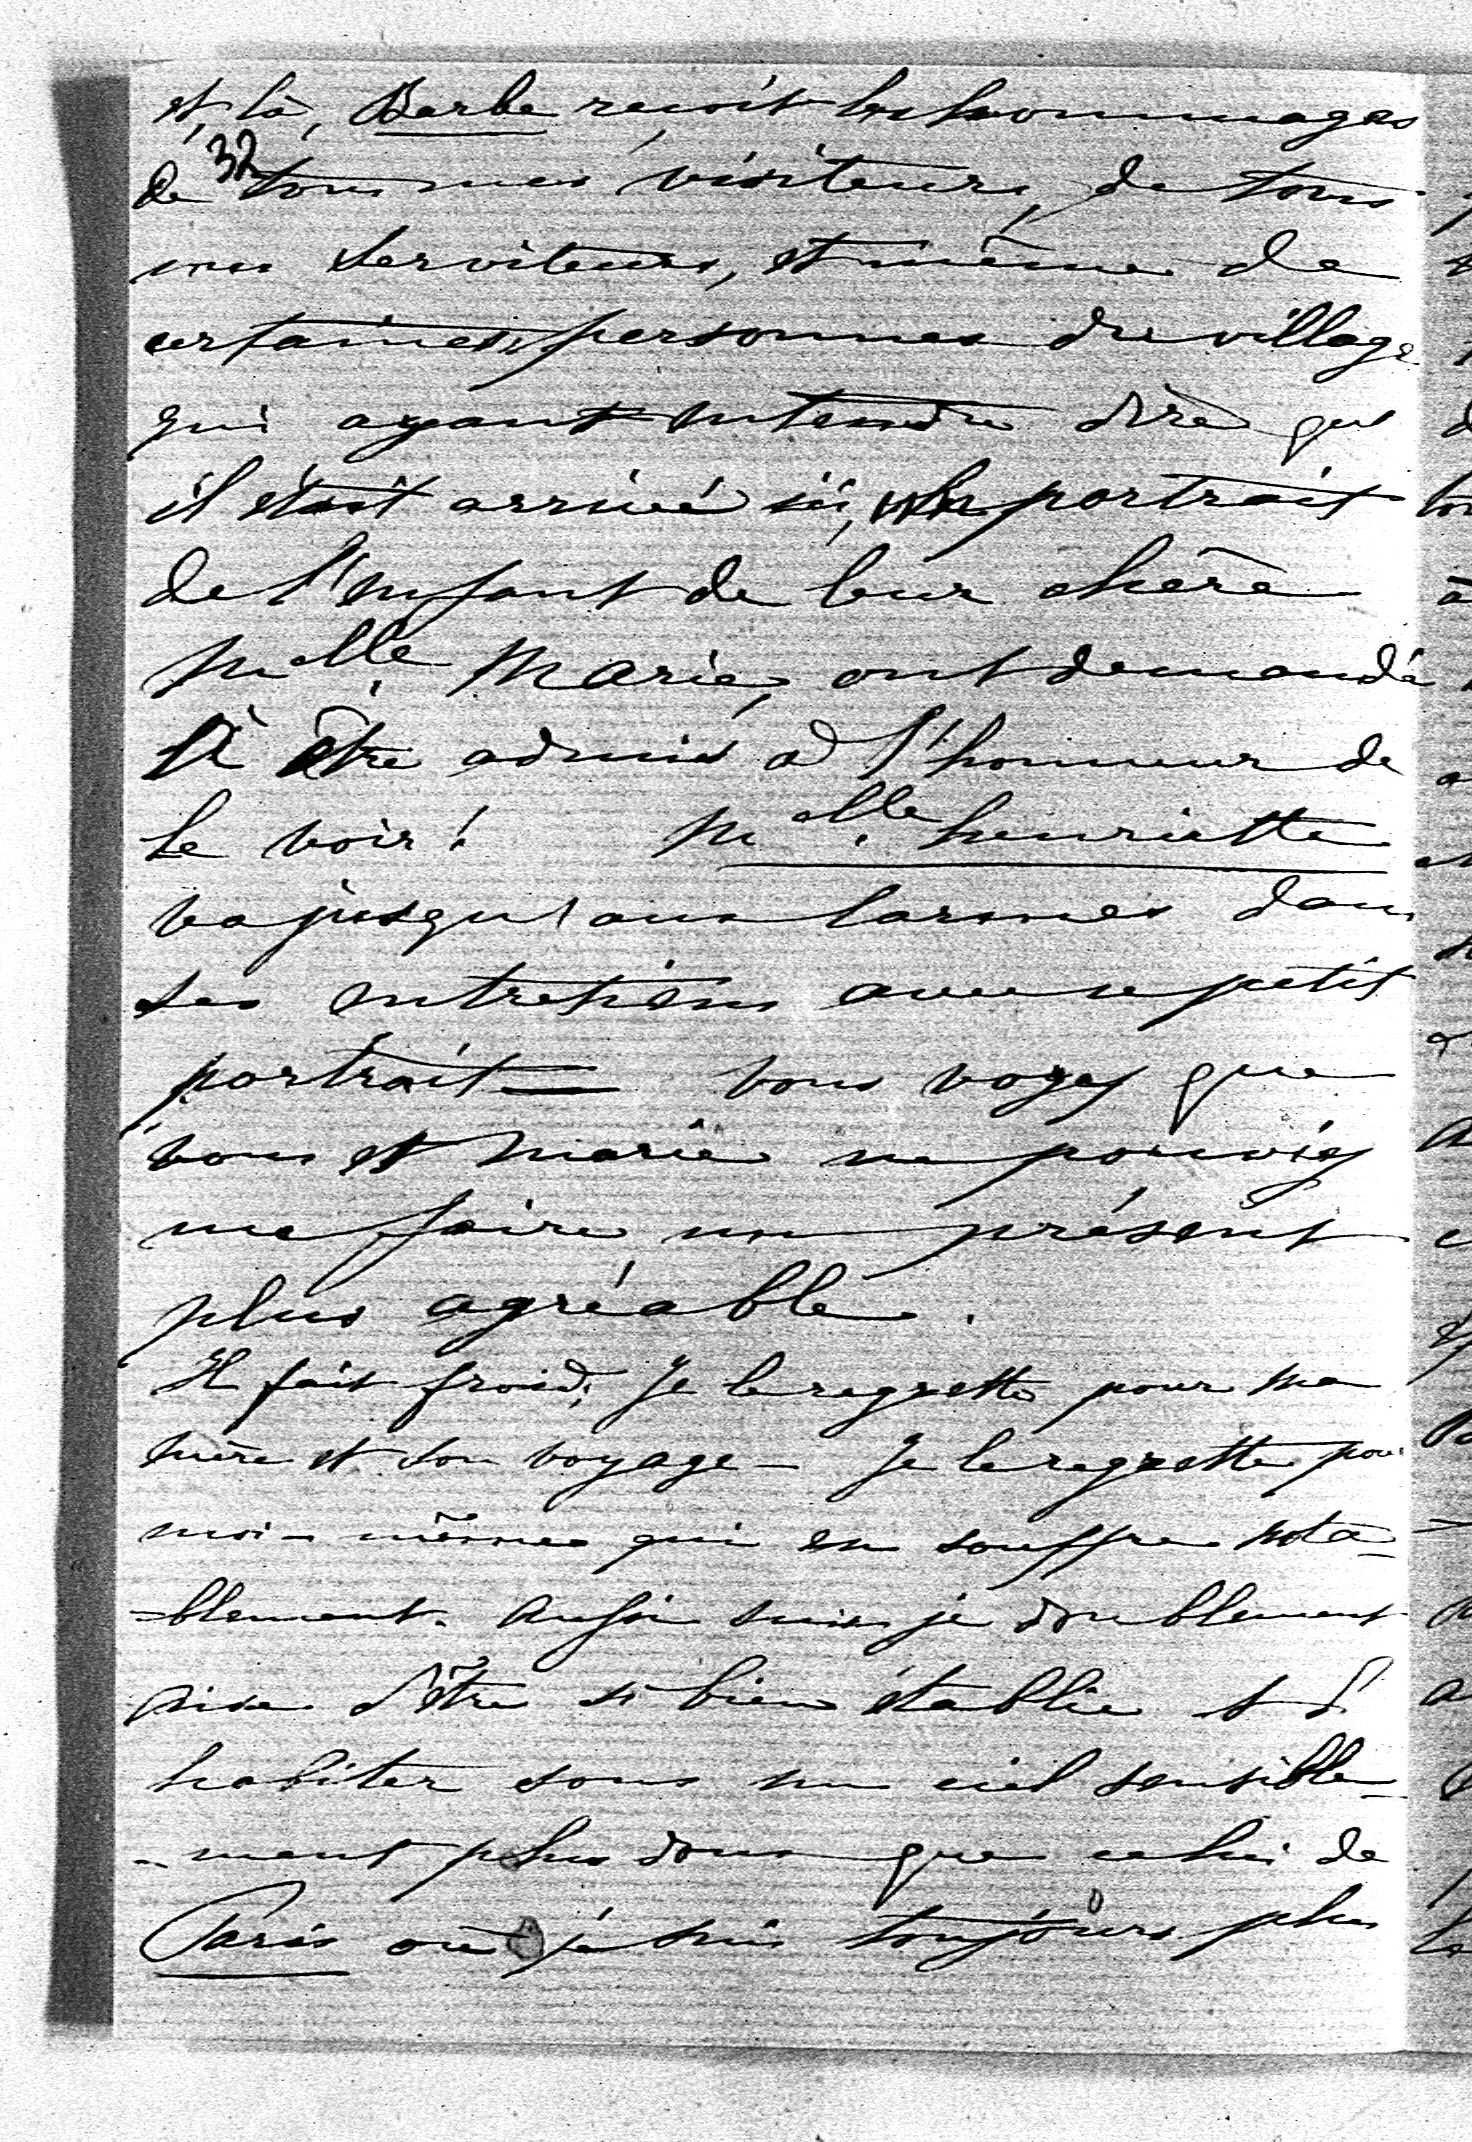 et là, Barbe reçoit les hommages
32
de tous mes visiteurs, de tous
mes serviteurs, et même de
certaines personnes du village
qui ayant entendu dire que
il était arrivé ici, le portrait
de l'enfant de leur chère
Melle Marie, ont demandé
à être admis à l'honneur de
le voir! Melle henriette
va jusqu'aux larmes dans
ses entretiens avec ce petit
portrait — vous voyez que
vous et marie ne pouviez
me faire un présent
plus agréable.
Il fait froid; Je le regrette pour ma
mère et son voyage — Je le regrette pour
moi-même qui en souffre nota-
-blement. Aussi suis-je doublement
aise d'être si bien établie & d'
habiter sous un ciel sensible-
-ment plus doux que celui de
Paris où je suis toujours plus